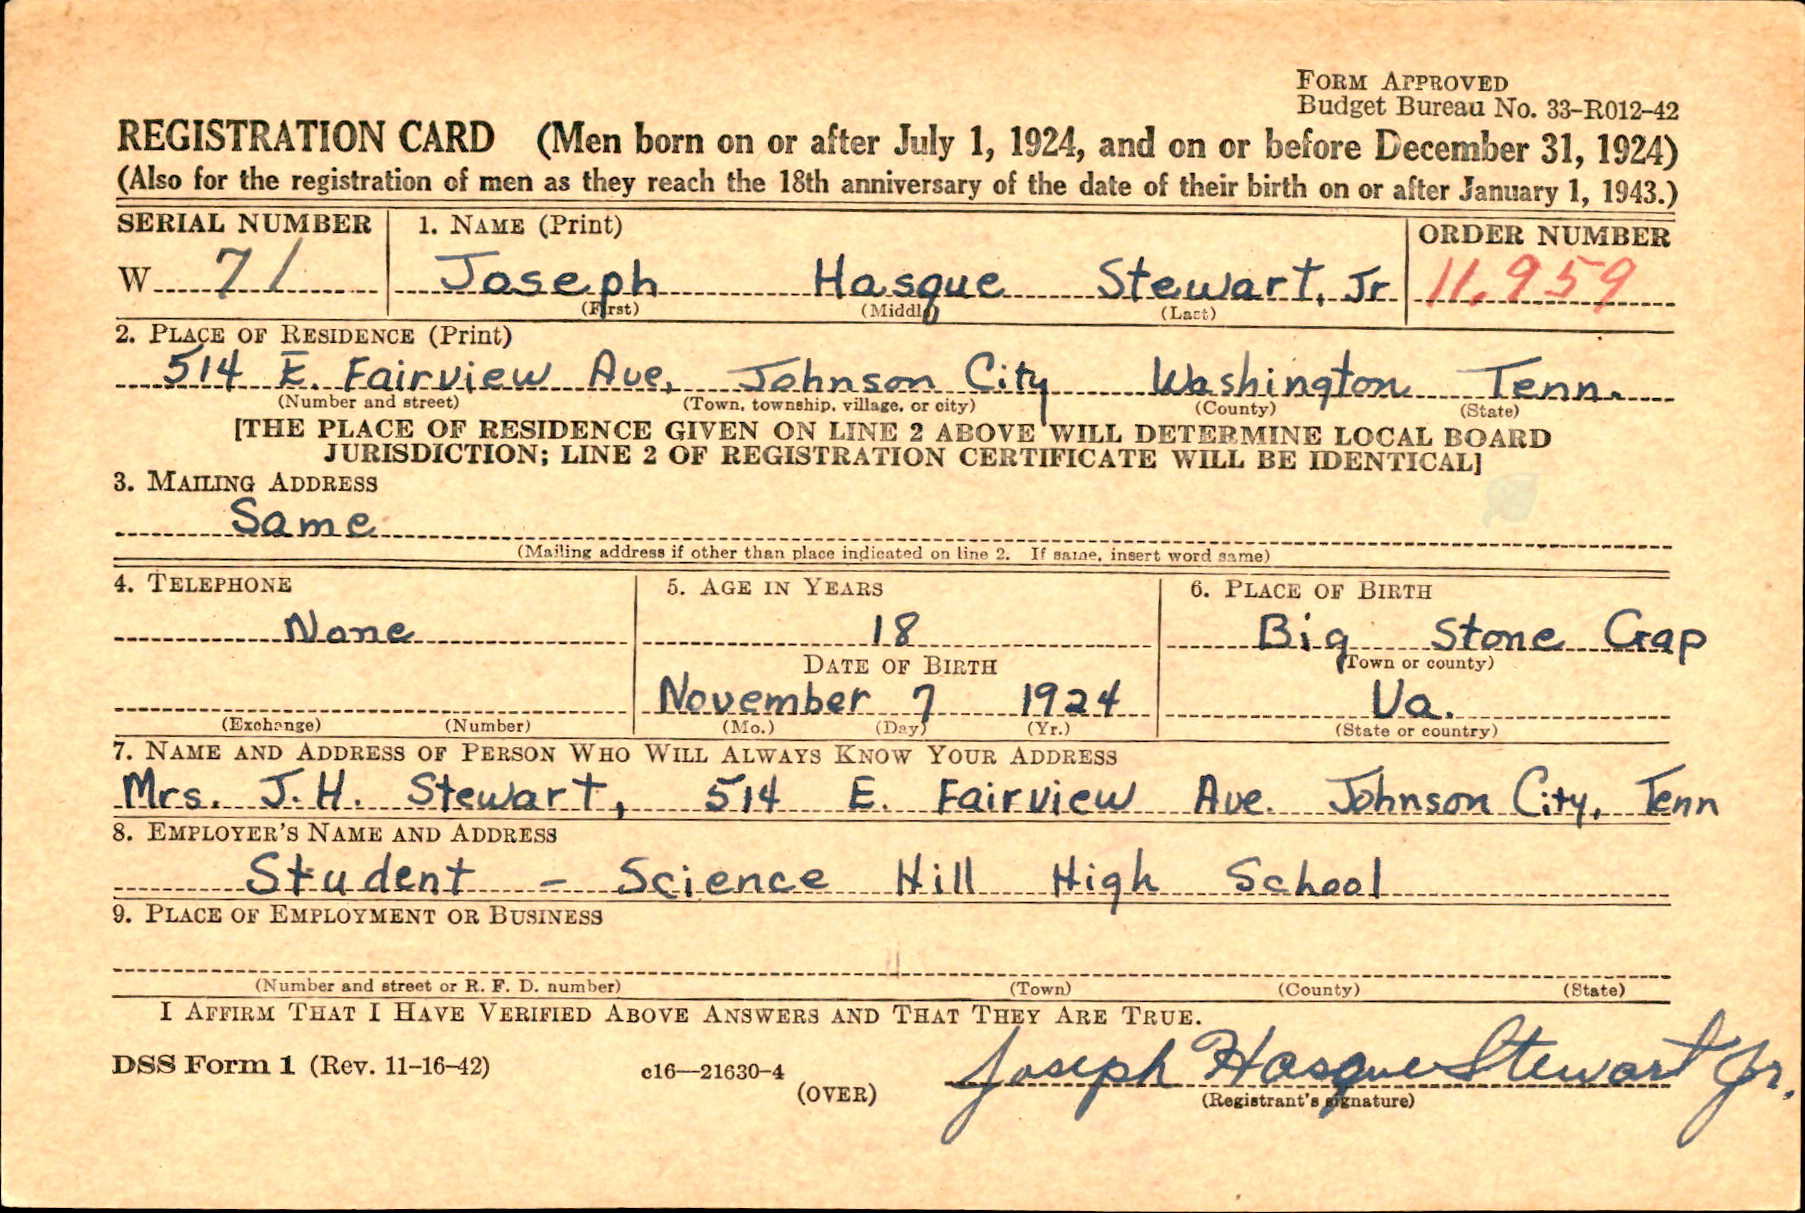 FORM APPROVED
Budget Bureau No. 33-R012-42
REGISTRATION CARD (Men born on or after July 1, 1924, and on or before December 31, 1924)
(Also for the registration of men as they reach the 18th anniversary of the date of their birth on or after January 1, 1943.)
SERIAL NUMBER 1. NAME (Print) ORDER NUMBER
W 71 Joseph Hasque Stewart, Jr 11,959
(First) (Middle) (Last)
2. PLACE OF RESIDENCE (Print)
514 E. Fairview Ave, Johnson City Washington Tenn.
(Number and street) (Town, township, village, or city) (County) (State)
[THE PLACE OF RESIDENCE GIVEN ON LINE 2 ABOVE WILL DETERMINE LOCAL BOARD
JURISDICTION; LINE 2 OF REGISTRATION CERTIFICATE WILL BE IDENTICAL]
3. MAILING ADDRESS
Same
(Mailing address if other than place indicated on line 2. If same, insert word same)
4. TELEPHONE 5. AGE IN YEARS 6. PLACE OF BIRTH
None 18 Big Stone Gap
DATE OF BIRTH (Town or county)
November 7 1924 Va.
(Exchange) (Number) (Mo.) (Day) (Yr.) (State or country)
7. NAME AND ADDRESS OF PERSON WHO WILL ALWAYS KNOW YOUR ADDRESS
Mrs. J.H. Stewart, 514 E. Fairview Ave. Johnson City, Tenn
8. EMPLOYER'S NAME AND ADDRESS
Student - Science Hill High School
9. PLACE OF EMPLOYMENT OR BUSINESS
(Number and street or R. F. D. number) (Town) (County) (State)
I AFFIRM THAT I HAVE VERIFIED ABOVE ANSWERS AND THAT THEY ARE TRUE.
DSS Form 1 (Rev. 11-16-42) c16—21630-4 (OVER) Joseph Hasque Stewart Jr.
(Registrant's signature)